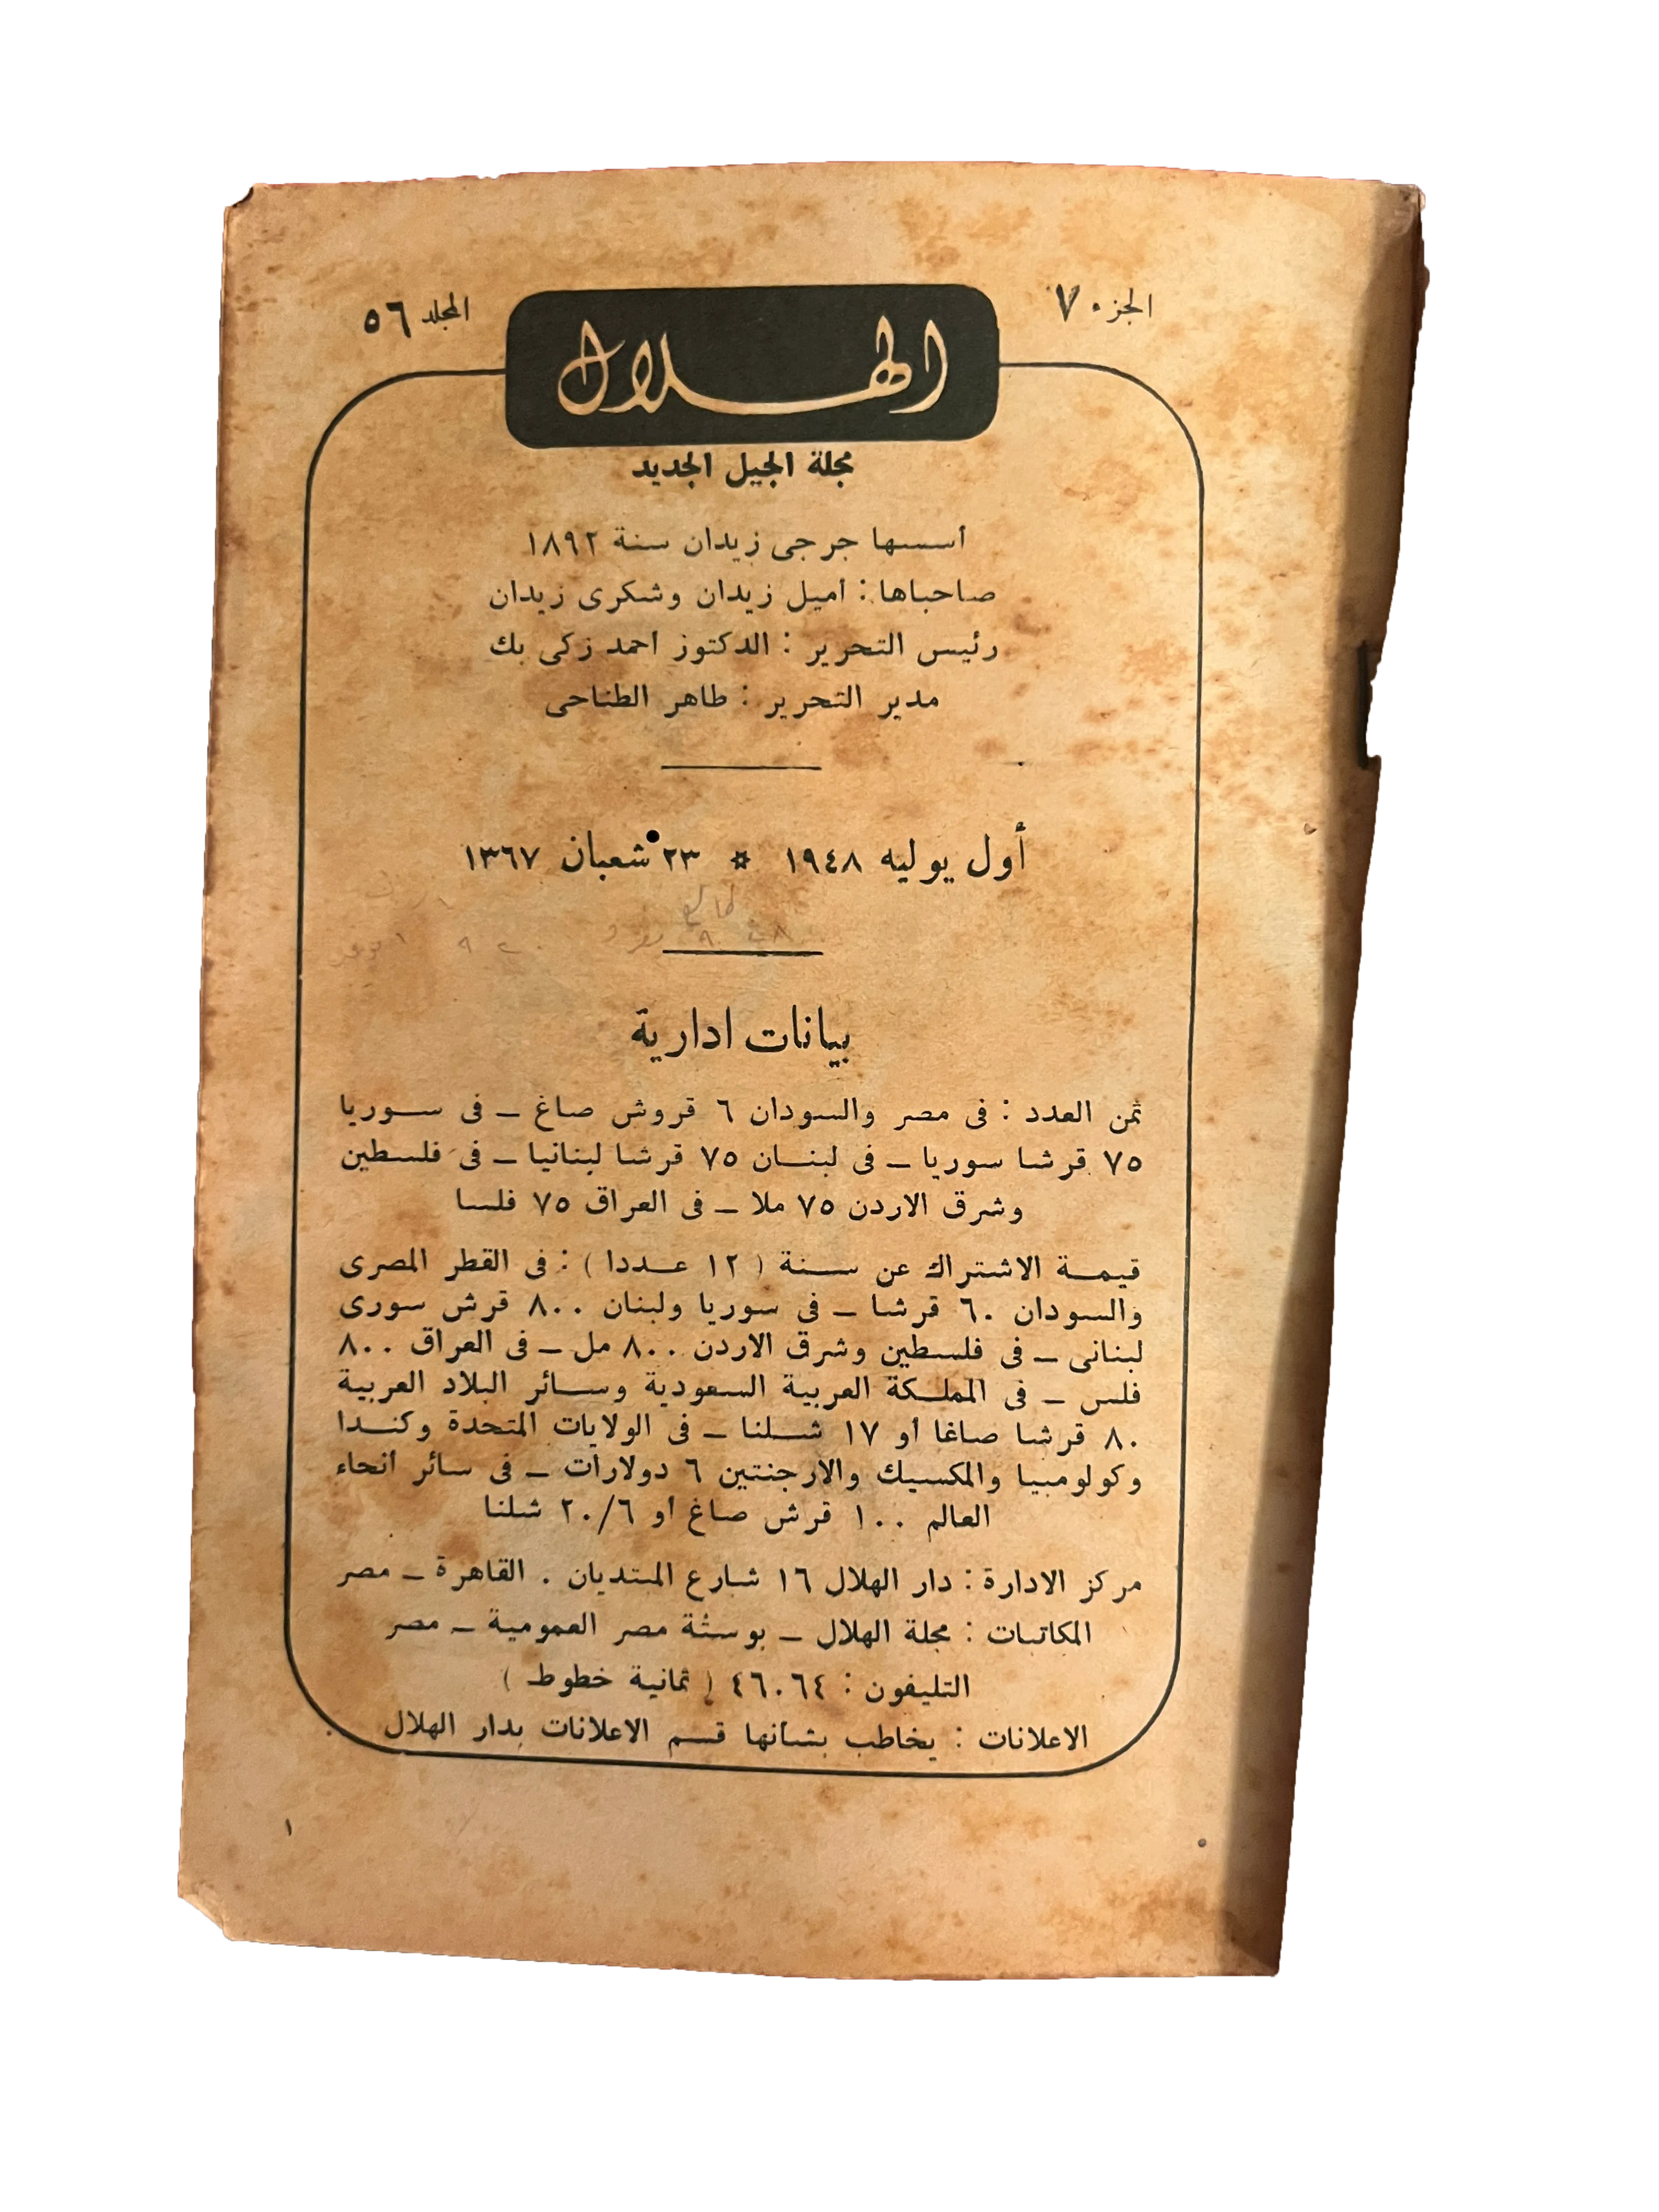 الجزء ٧
المجلد ٥٦
الهلال
مجلة الجيل الجديد
أسسها جرجى زيدان سنة ١٨٩٢
صاحباها : اميل زيدان وشكرى زيدان
رئيس التحرير : الدكتور احمد زكى بك
مدير التحرير : طاهر الطناحى
أول يوليه ١٩٤٨ * ٢٣ شعبان ١٣٦٧
بيانات ادارية
ثمن العدد : فى مصر والسودان ٦ قروش صاغ – فى سوريا
٧٥ قرشا سوريا – فى لبنان ٧٥ قرشا لبنانيا – فى فلسطين
وشرق الاردن ٧٥ ملا – فى العراق ٧٥ فلسا
قيمة الاشتراك عن سنة ( ١٢ عددا ) : فى القطر المصرى
والسودان ٦٠ قرشا – فى سوريا ولبنان ٨٠٠ قرش سورى
لبنانى – فى فلسطين وشرق الاردن ٨٠٠ مل – فى العراق ٨٠٠
فلس – فى المملكة العربية السعودية وسائر البلاد العربية
٨٠ قرشا صاغا أو ١٧ شلنا – فى الولايات المتحدة وكندا
وكولومبيا والمكسيك والارجنتين ٦ دولارات – فى سائر أنحاء
العالم ١٠٠ قرش صاغ أو ٢٠/٦ شلنا
مركز الادارة : دار الهلال ١٦ شارع المبتديان . القاهرة – مصر
المكاتبات : مجلة الهلال – بوستة مصر العمومية – مصر
التليفون : ٤٦٠٦٤ ( ثمانية خطوط )
الاعلانات : يخاطب بشأنها قسم الاعلانات بدار الهلال
١